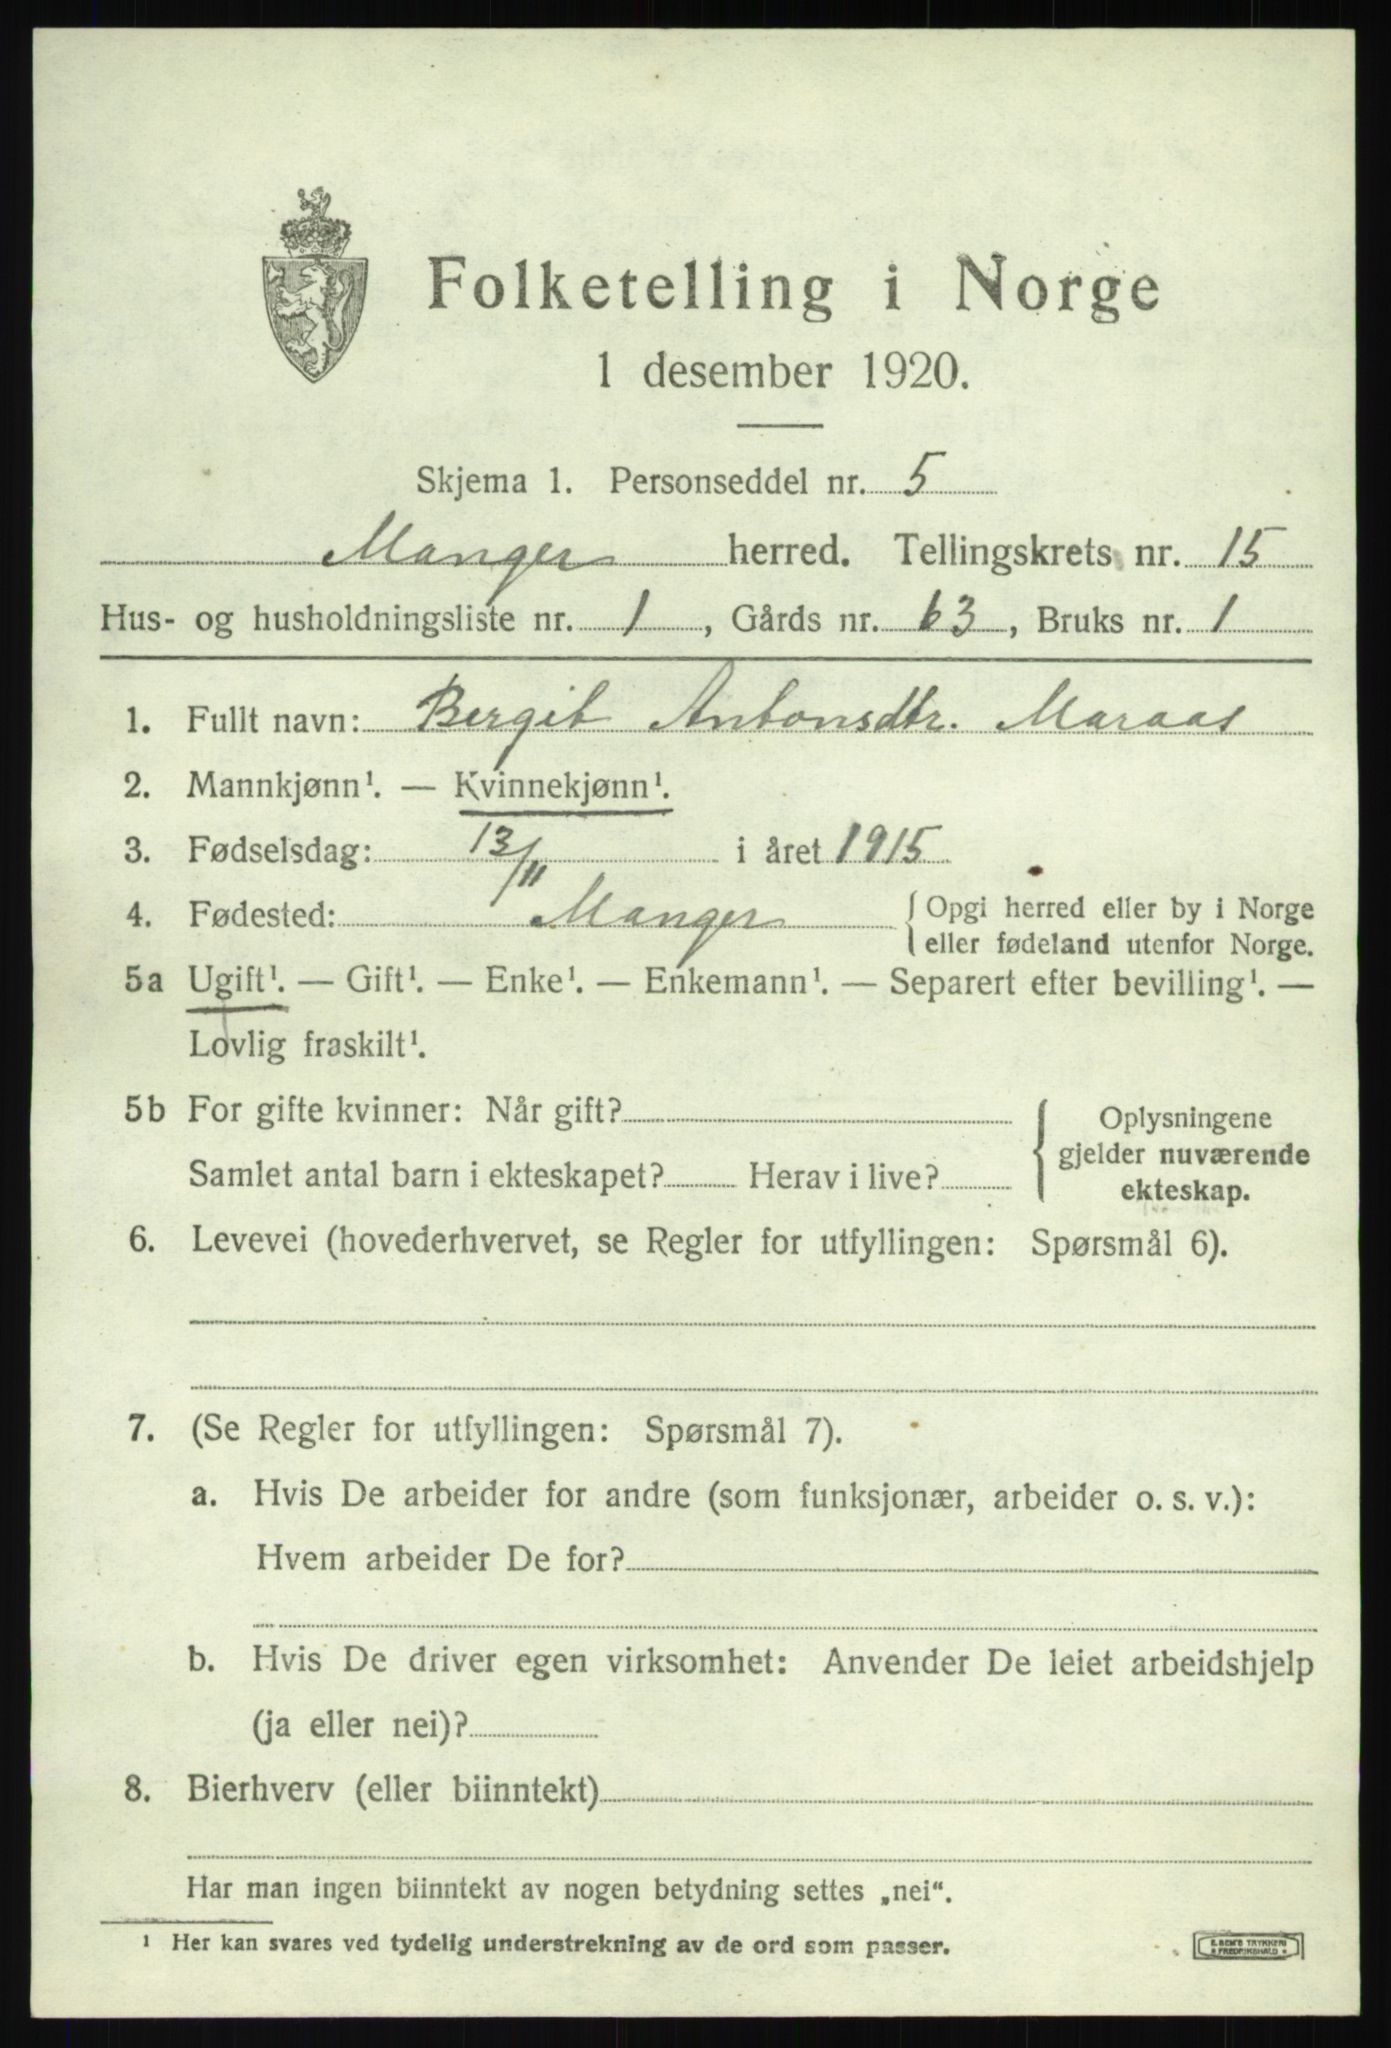 Folketelling i Norge
1 desember 1920.
Skjema 1. Personseddel nr. 5
Manger herred. Tellingskrets nr. 15
Hus- og husholdningsliste nr. 1, Gårds nr. 63, Bruks nr. 1
1. Fullt navn: Bergit Antonsdtr. Maraas
2. Mannkjønn¹. — Kvinnekjønn¹.
3. Fødselsdag: 13/11 i året 1915
4. Fødested: Manger { Opgi herred eller by i Norge
eller fødeland utenfor Norge.
5a Ugift¹. — Gift¹. — Enke¹. — Enkemann¹. — Separert efter bevilling¹. —
Lovlig fraskilt¹.
5b For gifte kvinner: Når gift?
Samlet antal barn i ekteskapet? Herav i live?
{ Oplysningene
gjelder nuværende
ekteskap.
6. Levevei (hovederhvervet, se Regler for utfyllingen: Spørsmål 6).
7. (Se Regler for utfyllingen: Spørsmål 7).
a. Hvis De arbeider for andre (som funksjonær, arbeider o. s. v.):
Hvem arbeider De for?
b. Hvis De driver egen virksomhet: Anvender De leiet arbeidshjelp
(ja eller nei)?
8. Bierhverv (eller biinntekt)
Har man ingen biinntekt av nogen betydning settes „nei“.
¹ Her kan svares ved tydelig understrekning av de ord som passer.
E. SEM'S TRYKKERI
FREDRIKSHALD